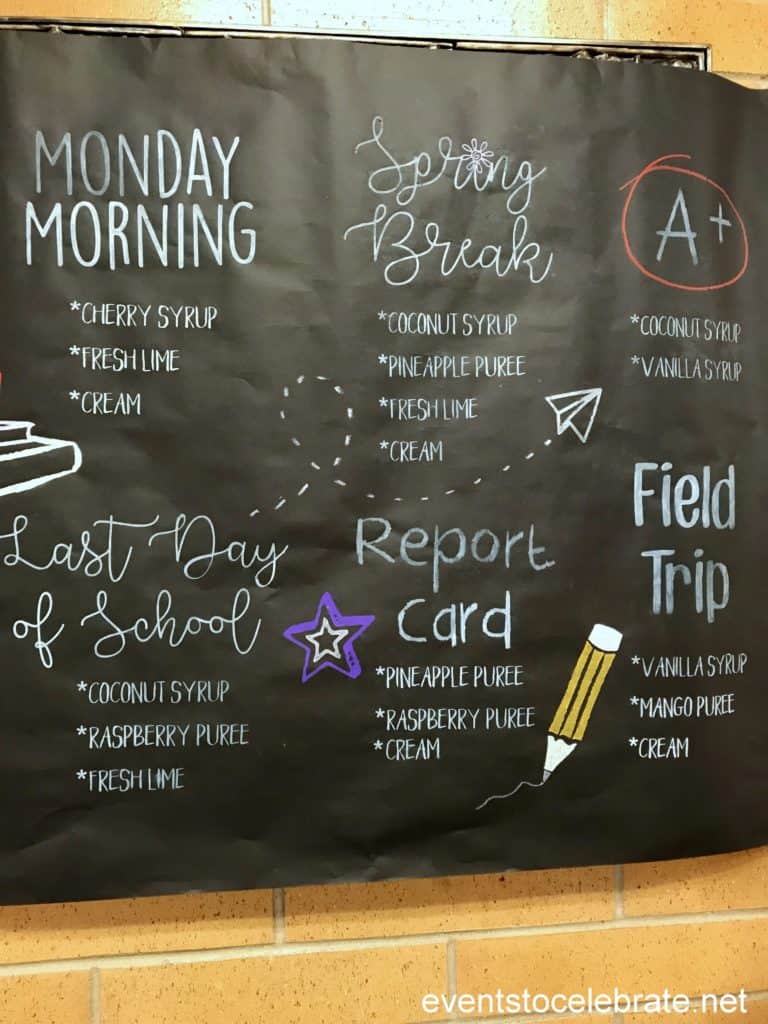 MONDAY
MORNING
*CHERRY SYRUP
*FRESH LIME
*CREAM
Spring
Break
*COCONUT SYRUP
*PINEAPPLE PUREE
*FRESH LIME
*CREAM
A+
*COCONUT SYRUP
*VANILLA SYRUP
Last Day
of School
*COCONUT SYRUP
*RASPBERRY PUREE
*FRESH LIME
Report
Card
*PINEAPPLE PUREE
*RASPBERRY PUREE
*CREAM
Field
Trip
*VANILLA SYRUP
*MANGO PUREE
*CREAM
eventstocelebrate.net